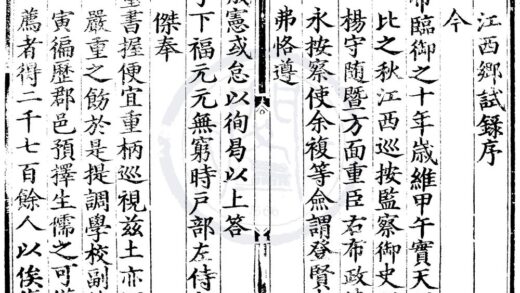 江西鄉試錄序
今
帝臨御之十年歲維甲午實天
比之秋江西巡按監察御史
楊守隨暨方面重臣右布政
永按察使余複等僉謂登賢
弗恪遵
成憲或怠以徇曷以上答
下福元元無窮時戶部左侍
傑奉
書握便宜重柄巡視茲土亦
嚴重之飭於是提調學校副
寅徧歷郡邑預擇生儒之可
薦者得二千七百餘人以俟